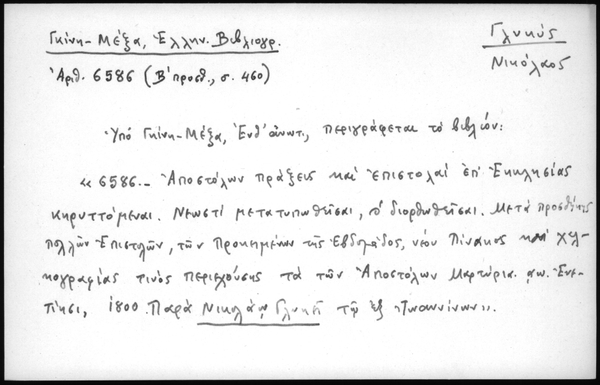 Γκίνη - Μέξα, Ἑλλην. Βιβλιογρ.
Γλυκύς
Νικόλαος
Ἀριθ. 6586 (Β' προσθ., σ. 460)
Ὑπό Γκίνη-Μέξα, Ἐνθ' ἀνωτ., περιγράφεται τό βιβλίον:
« 6586.- Ἀποστόλων πράξεις καί ἐπιστολαί ἐπ' Ἐκκλησίας
κηρυττόμεναι. Νεωστί μετατυπωθεῖσαι, διορθωθεῖσαι. Μετά προσθήκης
πολλῶν Ἐπιστολῶν, τῶν Προκειμένων τῆς Ἑβδομάδος, νέου Πίνακος καί χαλ-
κογραφίας τινός περιεχούσης τά τῶν Ἀποστόλων Μαρτύρια. αω. Ἐνε-
τίησι, 1800. Παρά Νικολάῳ Γλυκεῖ τῷ ἐξ Ἰωαννίνων».